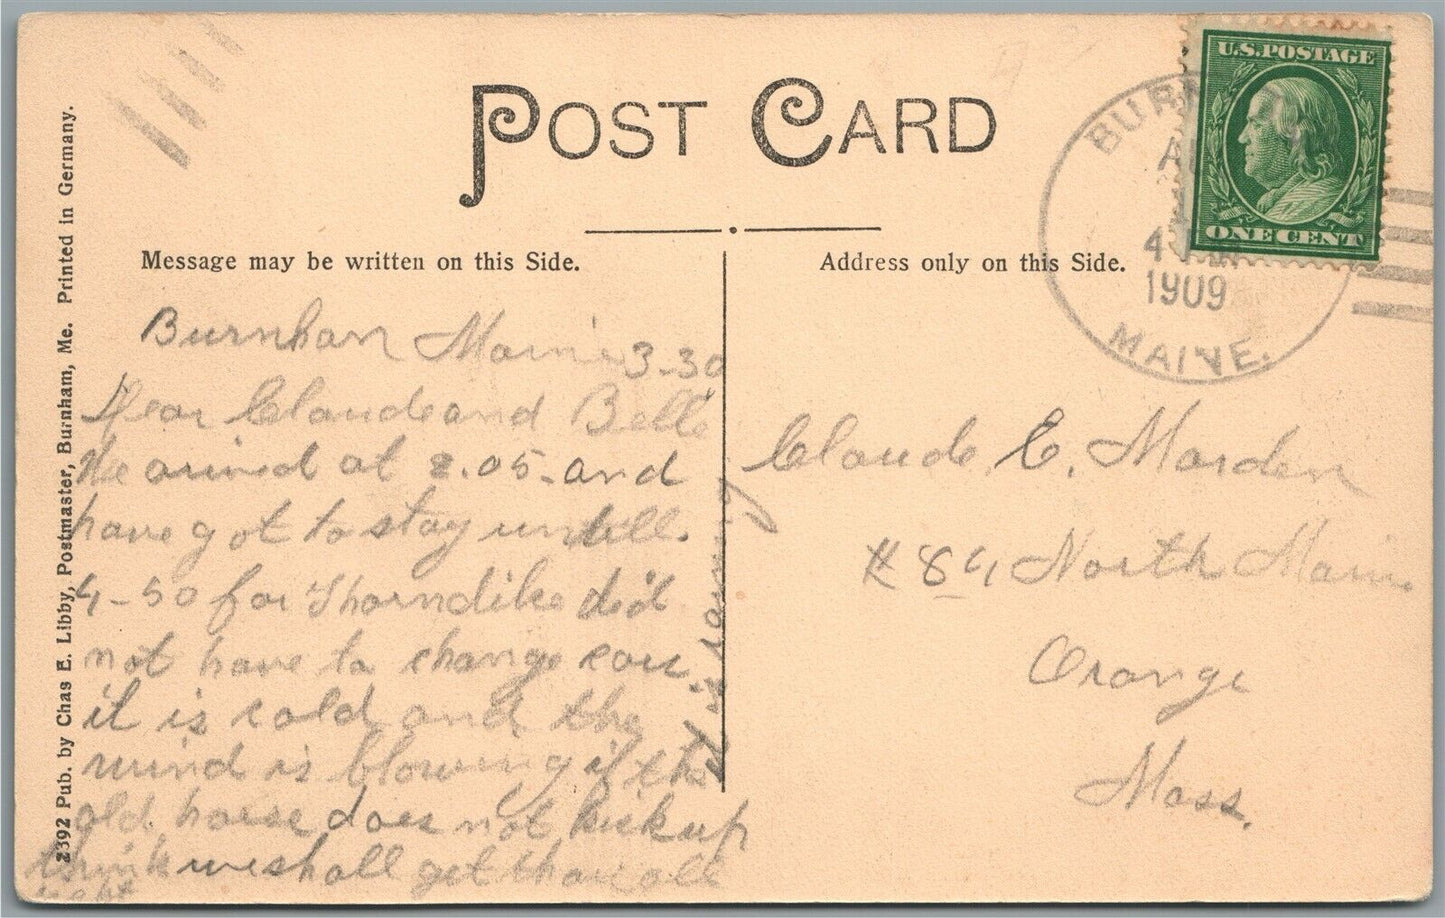 POST CARD
U.S. POSTAGE
ONE CENT
BURN
4
1909
MAINE.
Message may be written on this Side.
Address only on this Side.
2392 Pub. by Chas E. Libby, Postmaster, Burnham, Me. Printed in Germany.
Burnham Maine 3-30
Dear Claude and Belle
We arived at 2.05-and
have got to stay untill
4-50 for Thorndike did
not have to change cars.
it is cold and the
wind is blowing if the
old horse does not kick up
think we shall get thar all
right
Claude E. Marden
# 84 North Main
Orange
Mass.